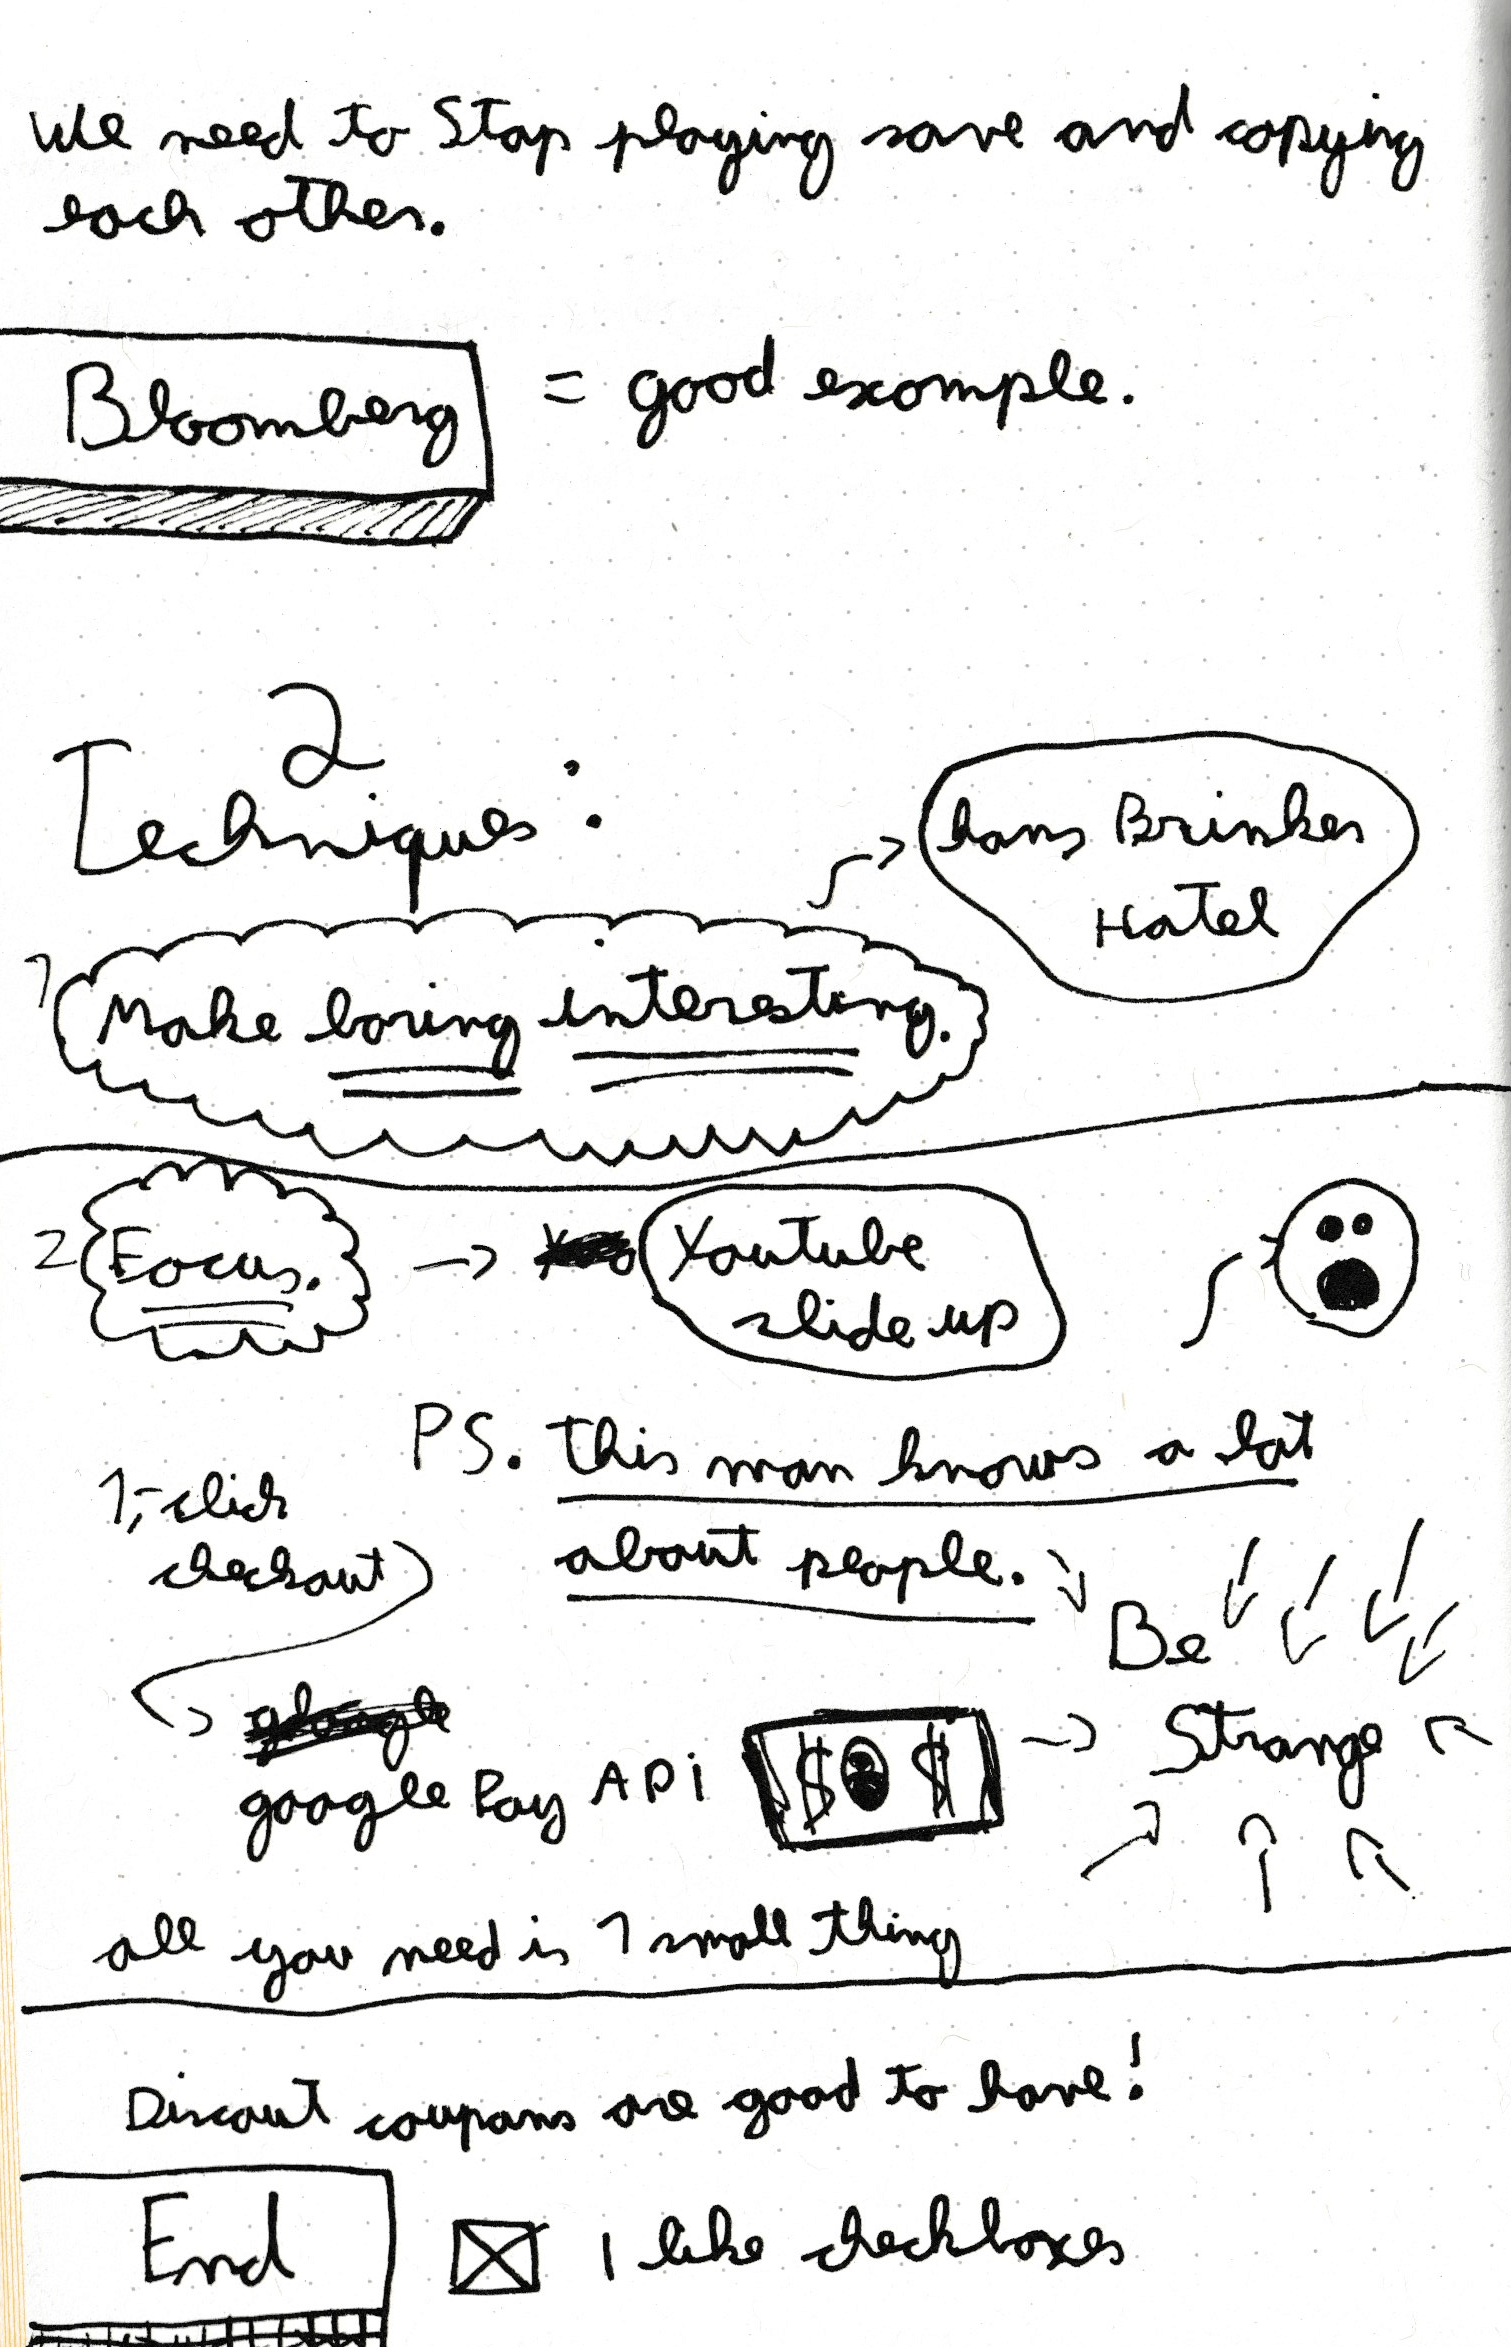 We need to Stop playing save and copying
each other.
Bloomberg = good example.
2
Techniques:
hans Brinker
Hotel
1 Make boring interesting.
2 Focus. → Youtube
slide up
PS. this man knows a lot
about people.
1, click
checkout
Be
Strange
google
google Pay API $ $
all you need is 1 small thing
Discout coupons are good to have!
End I like checkboxes